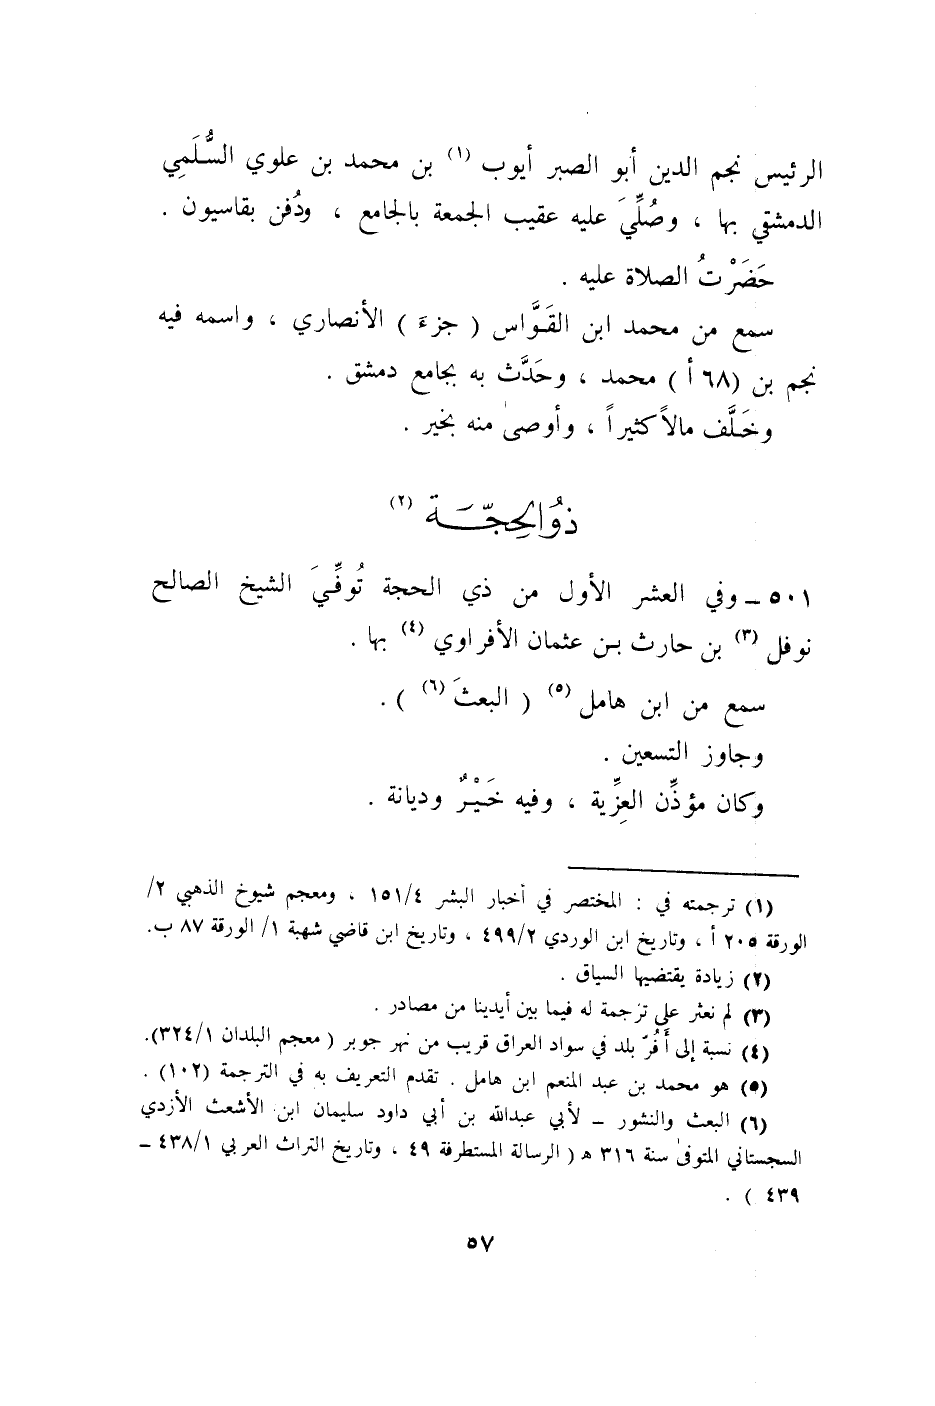 الرئيس نجم الدين أبو الصبر أيوب (١) بن محمد بن علوي السُّلَمِي
الدمشقي بها ، وصُلِّيَ عليه عقيب الجمعة بالجامع ، ودُفن بقاسيون .
حَضَرْتُ الصلاة عليه .
سمع من محمد ابن القَوَّاس ( جزءَ ) الأنصاري ، واسمه فيه
نجم بن (٦٨ أ ) محمد ، وحَدَّث به بجامع دمشق .
وخَلَّف مالاً كثيراً ، وأوصىٰ منه بخير .
ذوُ الحِجّة (٢)
٥٠١ ـ وفي العشر الأول من ذي الحجة تُوفِّيَ الشيخ الصالح
نوفل (٣) بن حارث بن عثمان الأفراوي (٤) بها .
سمع من ابن هامل (٥) ( البعثَ (٦) ) .
وجاوز التسعين .
وكان مؤذِّن العِزِّية ، وفيه خَيْرٌ وديانة .
(١) ترجمته في : المختصر في أخبار البشر ١٥١/٤ ، ومعجم شيوخ الذهبي ٢/
الورقة ٢٠٥ أ ، وتاريخ ابن الوردي ٤٩٩/٢ ، وتاريخ ابن قاضي شهبة ١/ الورقة ٨٧ ب.
(٢) زيادة يقتضيها السياق .
(٣) لم نعثر على ترجمة له فيما بين أيدينا من مصادر .
(٤) نسبة إلى أَفُرّ بلد في سواد العراق قريب من نهر جوبر ( معجم البلدان ٣٢٤/١).
(٥) هو محمد بن عبد المنعم ابن هامل . تقدم التعريف به في الترجمة (١٠٢) .
(٦) البعث والنشور ــ لأبي عبدالله بن أبي داود سليمان ابن الأشعث الأزدي
السجستاني المتوفىٰ سنة ٣١٦ ه ( الرسالة المستطرفة ٤٩ ، وتاريخ التراث العربي ٤٣٨/١ ــ
٤٣٩ ) .
٥٧